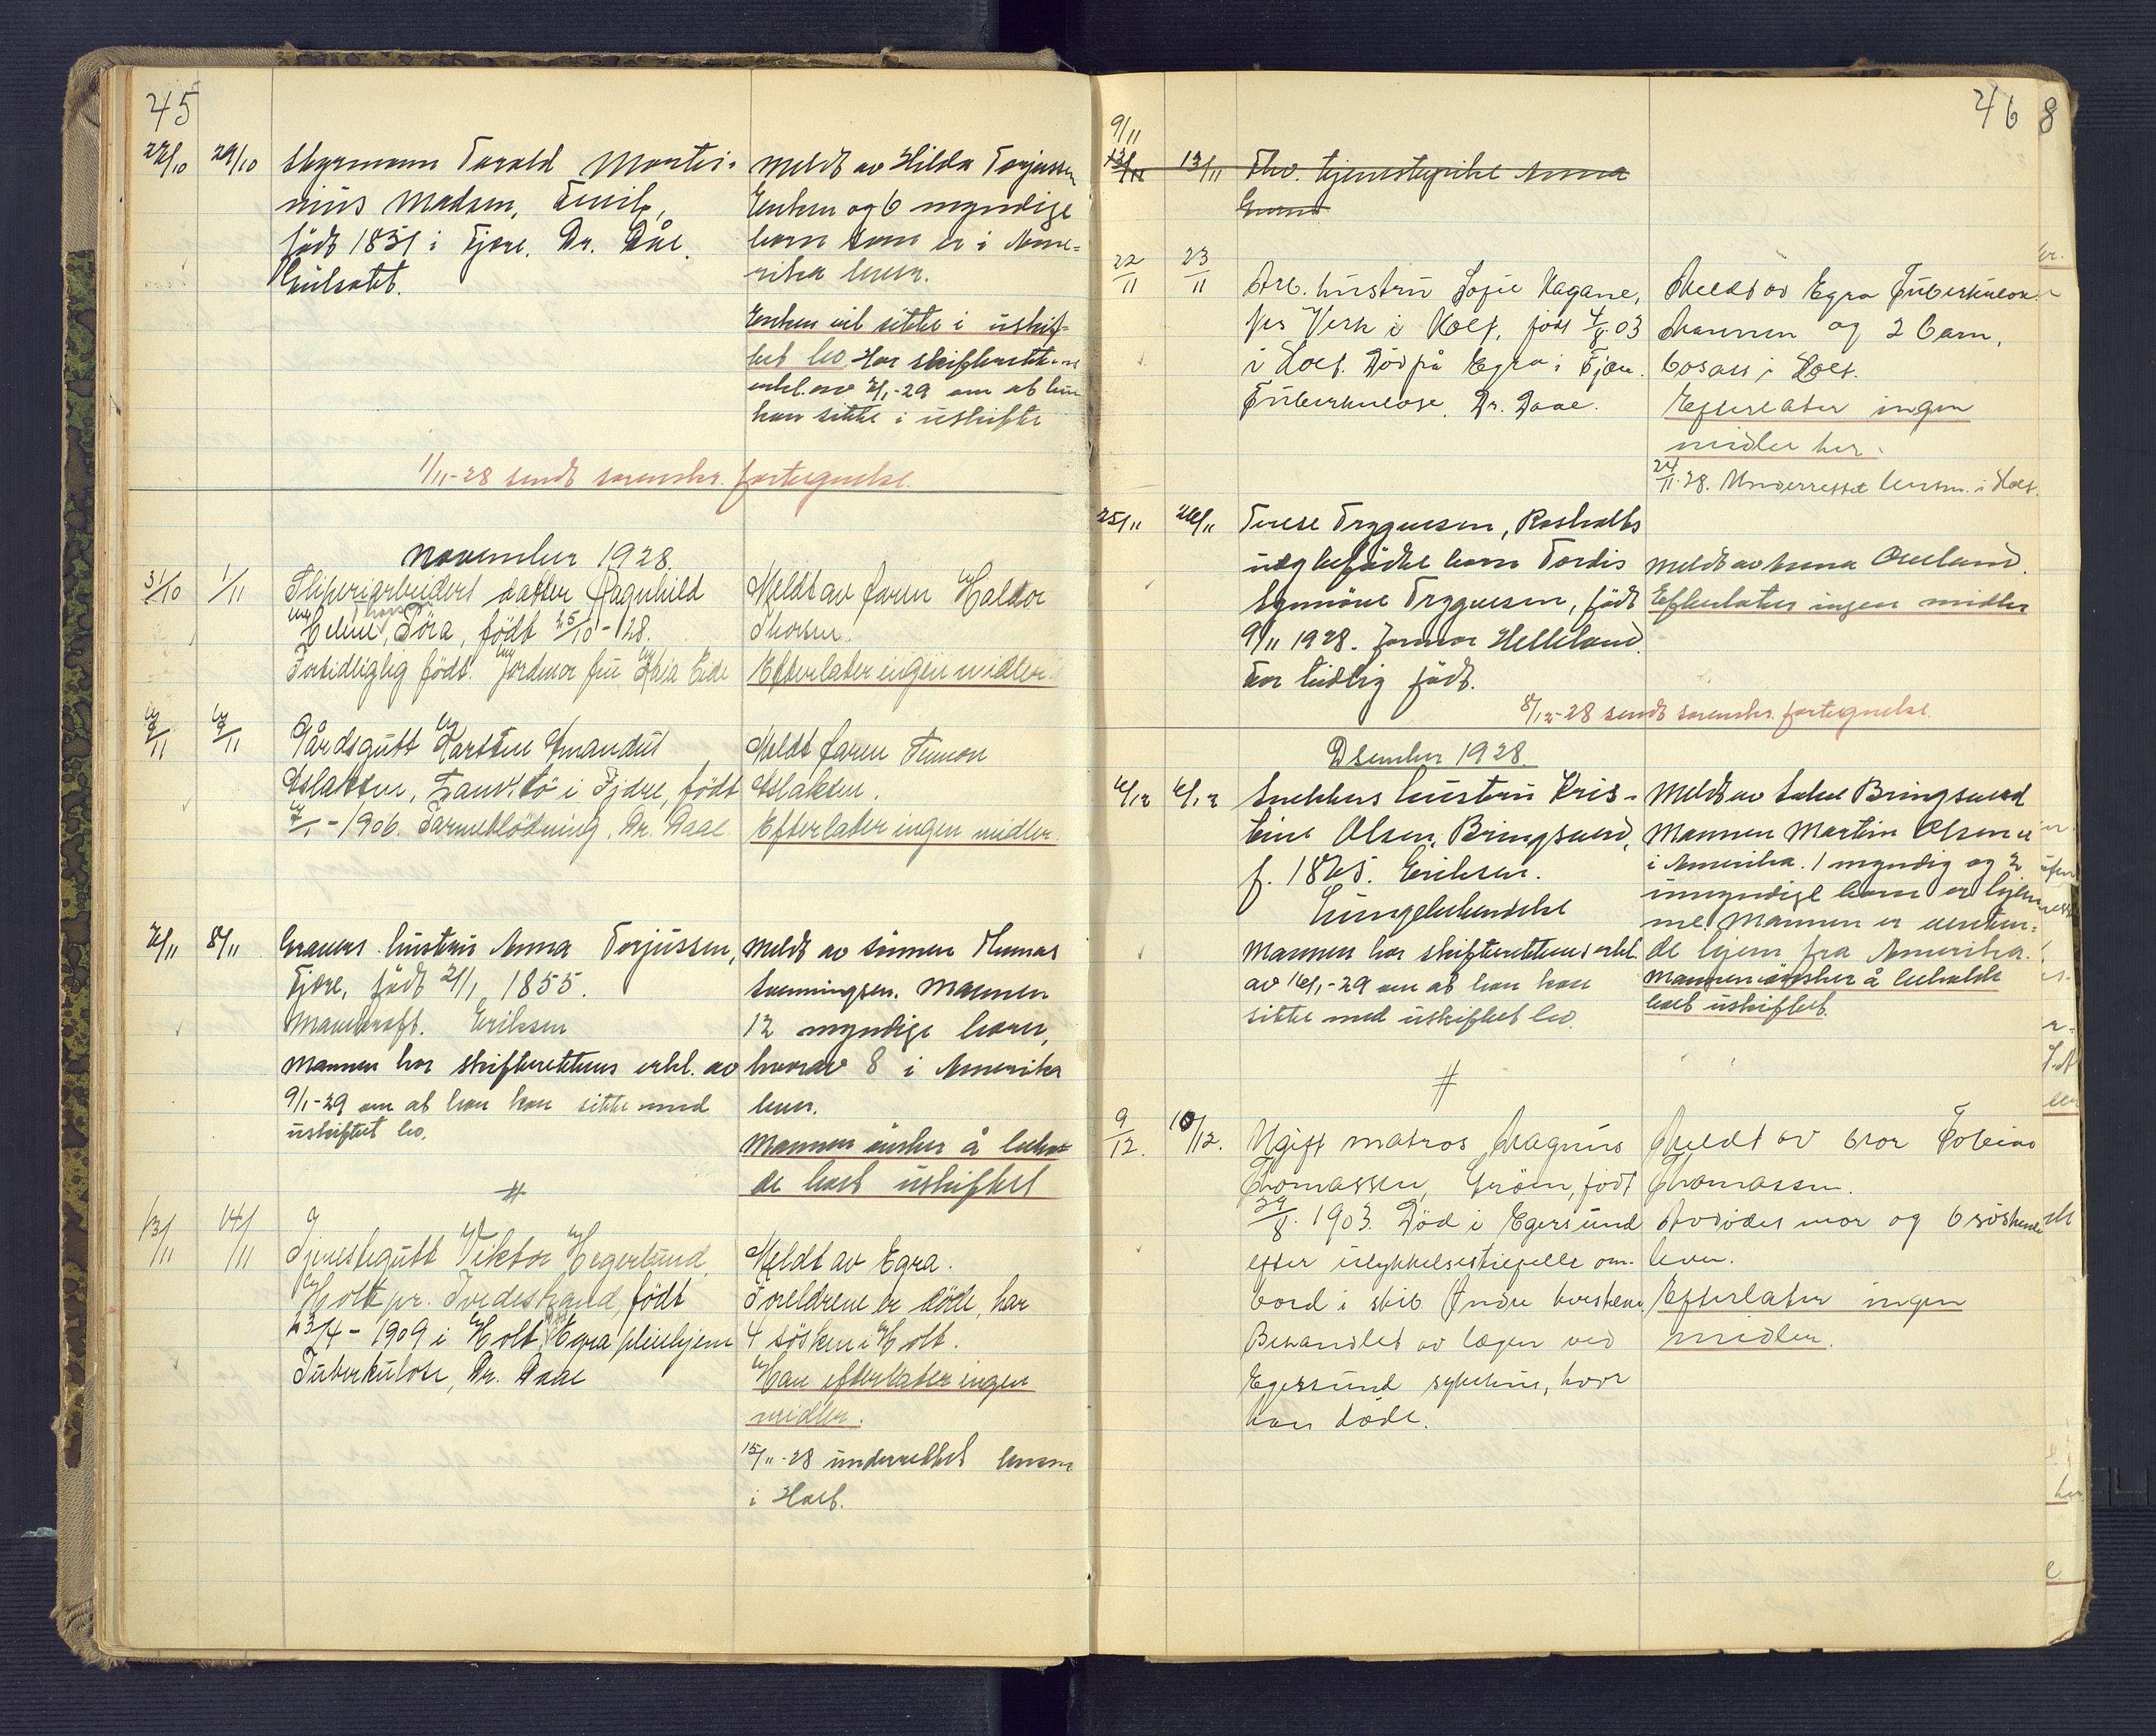 45
27/10 29/10 Skyrmann Tarald Marti-
nius Madsen,
født 1851 i Fjære. Dr. Dåe.
Meldt av Hilda Torjussen
Enken og 6 myndige
barn som er i Ame-
rika lever.
Enken vil sitte i uskif-
tet bo. Har skifterettens
erkl. av 2/1-29 om at hun
kan sitte i uskifte
1/11-28 sendt sorenskr. fortegnelse.
November 1928.
31/10 1/11 Sliperiarbeiders datter Ragnhild
Helene Tora, født 25/10-28.
Fortidliglig født. Jordmor fru Kaja Eide
Meldt av faren Haldor
Thorsen.
Efterlater ingen midler.
Gårdsgutt Karsten Amandus
Aslaksen, i Fjære, født
7/1-1906. Tarmeblödning, Dr. Daae
Meldt faren Tennon
Aslaksen.
Efterlater ingen midler.
7/11 8/11 Gravers hustru Anna Torjussen,
Fjære, født 21/1 1855.
Marekraft. Eriksen
Mannen har skifterettens erkl. av
9/1-29 om at han kan sitte med
uskiftet bo.
Meldt av sønnen Thomas
Svenningsen. Mannen
12 myndige barn,
hvorav 8 i Amerika
lever.
Mannen ønsker å behol-
de boet uskiftet
#
13/11 14/11 Tjenestegutt Viktor Hegerlund,
Holt pr. Tvedestrand, født
23/4-1909 i Holt, Egra pleiehjem
Tuberkulose, Dr. Daae
Meldt av Egra.
Foreldrene er døde, har
4 søsken i Holt.
Han efterlater ingen
midler.
15/11-28 underrettet lensm
i Holt.
46
9/11
13/11 Fhv. tjenestepike Anna
22/11 23/11 Arb. hustru Sofie Hagane,
Nes Verk i Holt, født 4/8 03
i Holt. Død på Egra i Fjære.
Tuberkulose. Dr. Daae.
Meldt av Egra Tuberkulose
Mannen og 2 barn,
bosatt i Holt.
Efterlater ingen
midler her.
24/11-28. Underrettet lensm. i Holt.
25/11 26/11 Terese Tryggvesen, Rosholts
uegtefødte barn Tordis
Synnöve Tryggvesen, født
9/11 1928. Jormor Helleland.
For tidlig født.
Meldt av Anna Omeland.
Efterlater ingen midler
8/12-28 sendt sorenskr. fortegnelse.
Dsember 1928.
6/12 6/12 Snekkers hustru Kris-
tine Olsen, Bringsværd,
f. 1865. Eriksen.
Lungebetendelse
Mannen har skifterettens erkl.
av 16/1-29 om at han kan
sitte med uskiftet bo.
Meldt av Bringsværd
Mannen Martin Olsen er
i Amerika. 1 myndig og 2
umyndige barn er hjem-
me. Mannen er venten-
de hjem fra Amerika.
Mannen ønsker å beholde
boet uskiftet.
#
9/12. 10/12. Ugift matros Magnus
Thomassen, Grøm, født
29/8. 1903. Død i Egersund
efter ulykkelsestilfelle om-
bord i skib
Behandlet av lægen ved
Egersund sykehus, hvor
han døde.
Meldt av bror Tobias
Thomassen.
Avdødes mor og 6 søskende
lever.
Efterlater ingen
midler.